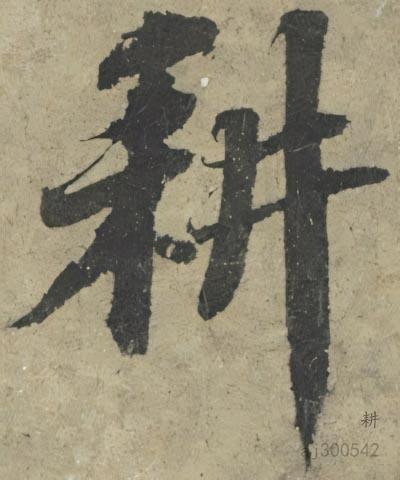 耕
耕
j300542